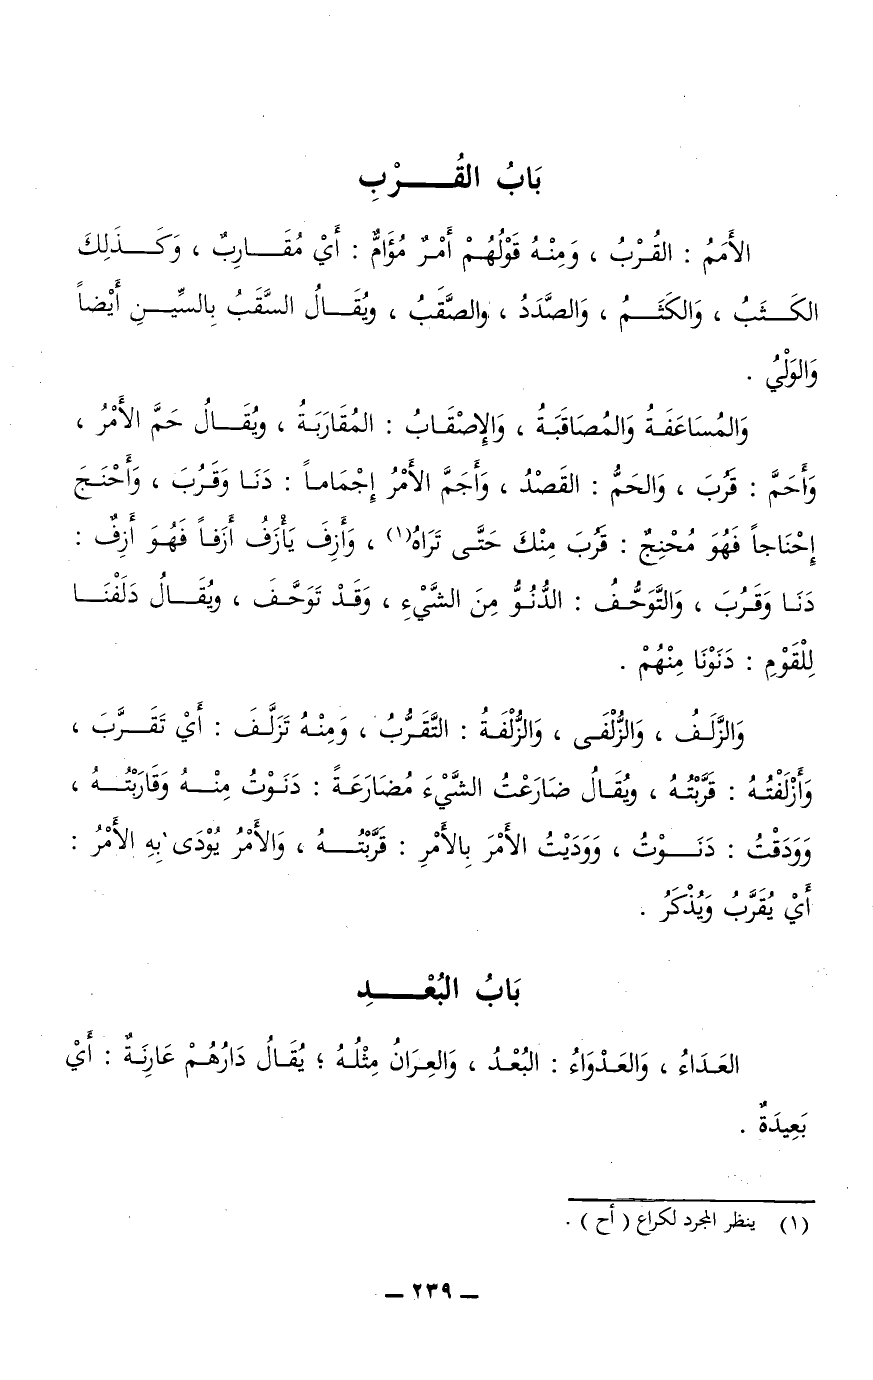 بَابُ القُــرْبِ
الأَمَمُ : القُرْبُ ، وَمِنْهُ قَوْلُهُمْ أَمْرٌ مُؤَامٌّ : أَيْ مُقَارِبٌ ، وَكَذَلِكَ
الكَثَبُ ، وَالكَثَمُ ، وَالصَّدَدُ ، والصَّقَبُ ، ويُقَالُ السَّقَبُ بِالسِّينِ أَيْضاً
وَالوَلْيُ .
وَالمُسَاعَفَةُ وَالمُصَاقَبَةُ ، وَالإِصْقَابُ : المُقَارَبَةُ ، ويُقَالُ حَمَّ الأَمْرُ ،
وَأَحَمَّ : قَرُبَ ، وَالحَمُّ : القَصْدُ ، وَأَجَمَّ الأَمْرُ إِجْمَاماً : دَنَا وَقَرُبَ ، وَأَحْنَجَ
إِحْنَاجاً فَهُوَ مُحْنِجٌ : قَرُبَ مِنْكَ حَتَّى تَرَاهُ(١) ، وَأَزِفَ يَأْزَفُ أَزَفاً فَهُوَ أَزِفٌ :
دَنَا وَقَرُبَ ، وَالتَّوَحُّفُ : الدُّنُوُّ مِنَ الشَّيْءِ ، وَقَدْ تَوَحَّفَ ، ويُقَالُ دَلَفْنَا
لِلْقَوْمِ : دَنَوْنَا مِنْهُمْ .
وَالزَّلَفُ ، وَالزُّلْفَى ، وَالزُّلْفَةُ : التَّقَرُّبُ ، وَمِنْهُ تَزَلَّفَ : أَيْ تَقَرَّبَ ،
وَأَزْلَفْتُهُ : قَرَّبْتُهُ ، ويُقَالُ ضَارَعْتُ الشَّيْءَ مُضَارَعَةً : دَنَوْتُ مِنْهُ وَقَارَبْتُهُ ،
وَوَدَقْتُ : دَنَوْتُ ، وَوَدَيْتُ الأَمْرَ بِالأَمْرِ : قَرَّبْتُهُ ، وَالأَمْرُ يُوْدَى بِهِ الأَمْرُ :
أَيْ يُقَرَّبُ وَيُذْكَرُ .
بَابُ البُعْــدِ
العَدَاءُ ، وَالعَدْوَاءُ : البُعْدُ ، وَالعِرَانُ مِثْلُهُ ؛ يُقَالُ دَارُهُمْ عَارِنَةٌ : أَيْ
بَعِيدَةٌ .
(١) ينظر المجرد لكراع ( أح ) .
ـ ٢٣٩ ـ